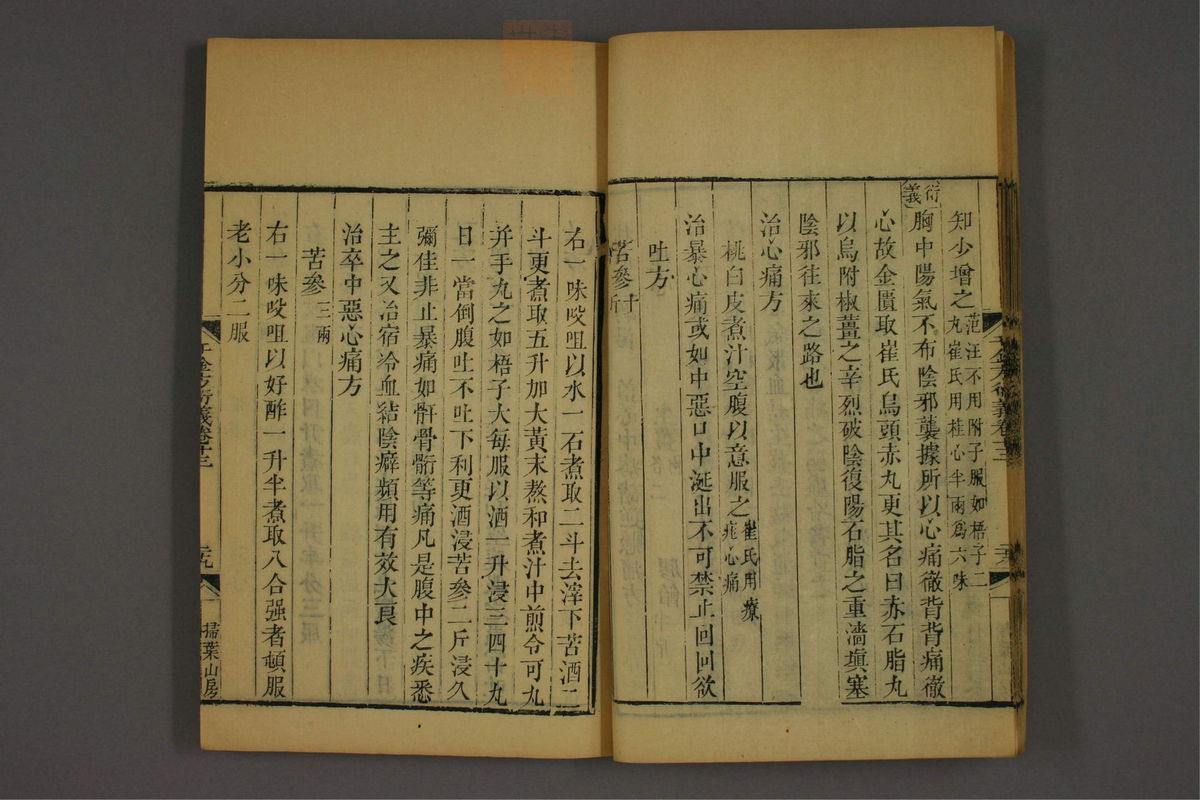 知少增之范汪不用附子服如梧子二丸崔氏用桂心半兩爲六味
衍義
胸中陽氣不布陰邪襲據所以心痛徹背背痛徹
心故金匱取崔氏烏頭赤丸更其名曰赤石脂丸
以烏附椒薑之辛烈破陰復陽石脂之重濇塡塞
陰邪往來之路也
治心痛方
桃白皮煮汁空腹以意服之崔氏用療疰心痛
治暴心痛或如中惡口中涎出不可禁止回回欲
吐方
苦參十斤
千金方衍義卷十三
右一味㕮咀以水一石煮取二斗去滓下苦酒二
斗更煮取五升加大黃末熬和煮汁中煎令可丸
并手丸之如梧子大每服以酒一升浸三四十丸
日一當倒腹吐不吐下利更酒浸苦參二斤浸久
彌佳非止暴痛如骭骨䯒等痛凡是腹中之疾悉
主之又治宿冷血結陰癖頻用有效大良
治卒中惡心痛方
苦參三兩
右一味㕮咀以好酢一升半煮取八合强者頓服
老小分二服
千金方衍義卷十三
掃葉山房